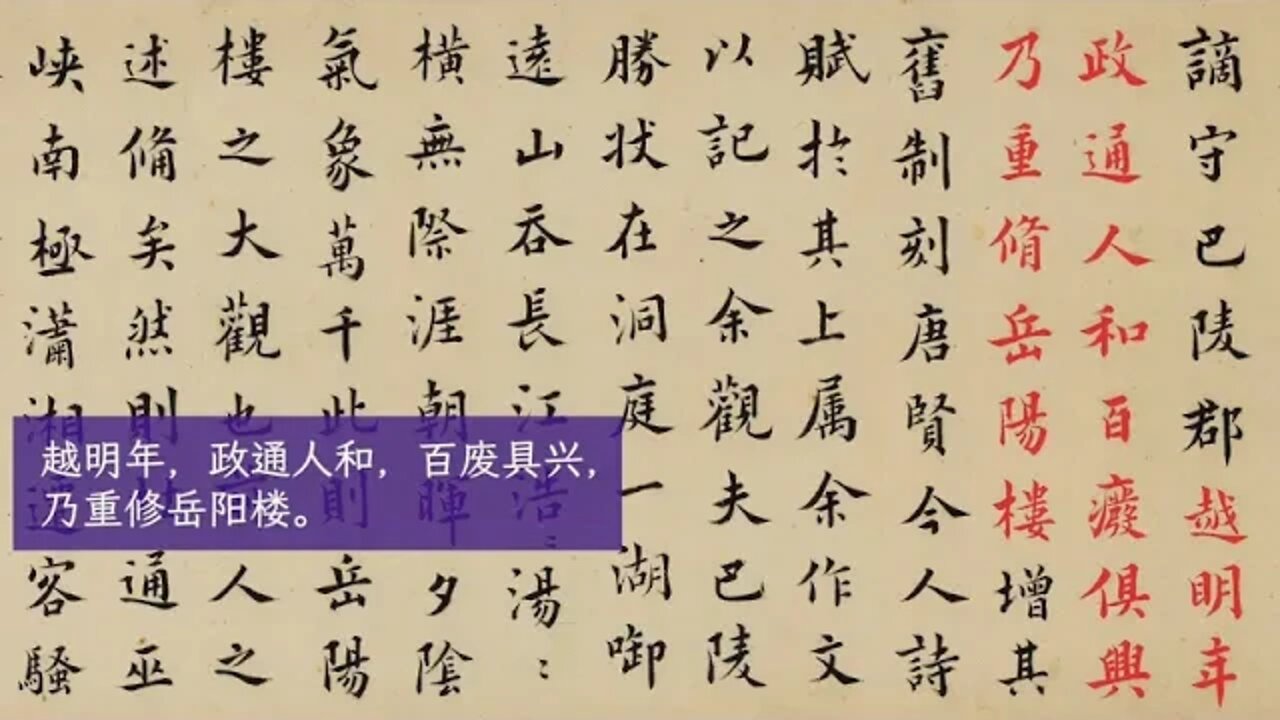 謫守巴陵郡越明年
政通人和百癈俱興
乃重脩岳陽樓增其
舊制刻唐賢今人詩
賦於其上属余作文
以記之余觀夫巴陵
勝状在洞庭一湖啣
遠山吞長江浩:湯:
橫無際涯朝暉夕陰
氣象萬千此則岳陽
樓之大觀也人之
述俻矣然則通巫
峡南極瀟湘遷客騷
越明年，政通人和，百废具兴，
乃重修岳阳楼。